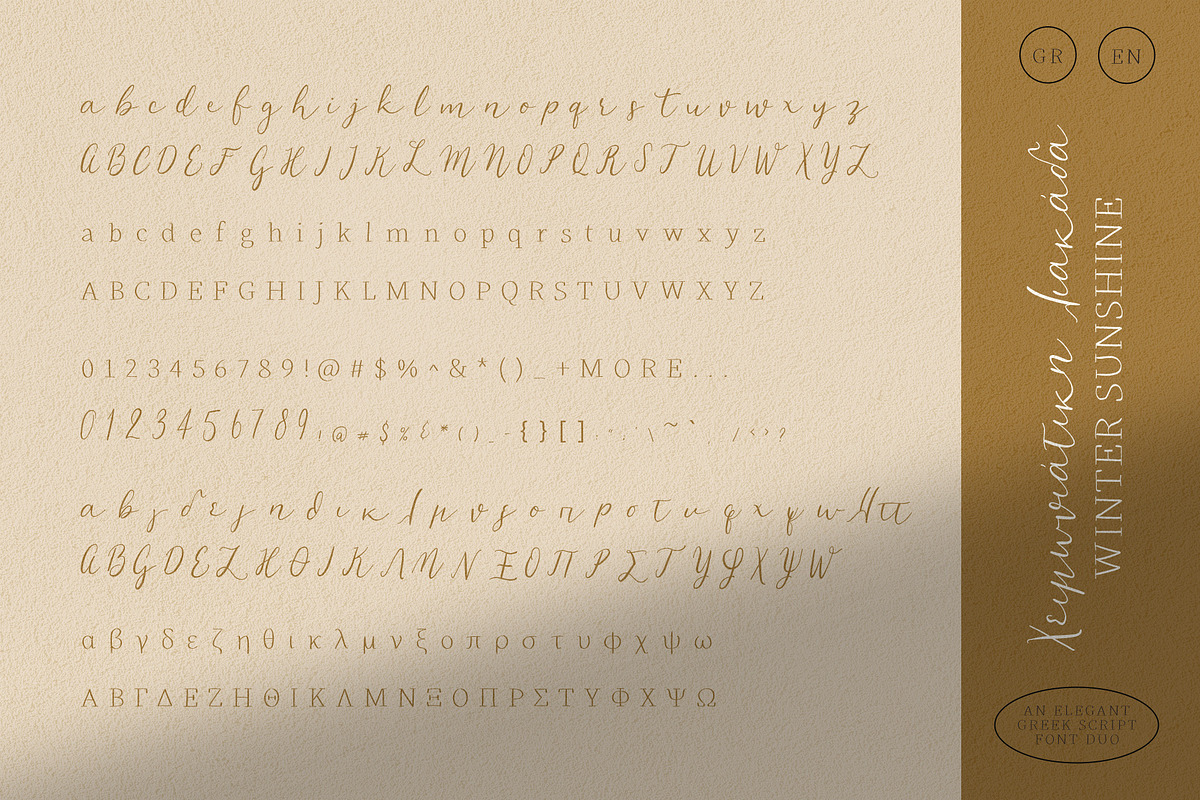 a b c d e f g h i j k l m n o p q r s t u v w x y z
A B C D E F G H I J K L M N O P Q R S T U V W X Y Z
a b c d e f g h i j k l m n o p q r s t u v w x y z
A B C D E F G H I J K L M N O P Q R S T U V W X Y Z
0 1 2 3 4 5 6 7 8 9 ! @ # $ % ^ & * ( ) _ + M O R E . . .
0 1 2 3 4 5 6 7 8 9 ! @ # $ % & * ( ) _ - { } [ ] : " . , \ ~ ` / < > ?
α β γ δ ε ζ η θ ι κ λ μ ν ξ ο π ρ σ τ υ φ χ ψ ω λλ ττ
Α Β G D Ε Ζ Η Θ Ι Κ Λ Μ Ν Ξ Ο Π Ρ Σ Τ Υ Φ Χ Ψ W
α β γ δ ε ζ η θ ι κ λ μ ν ξ ο π ρ σ τ υ φ χ ψ ω
Α Β Γ Δ Ε Ζ Η Θ Ι Κ Λ Μ Ν Ξ Ο Π Ρ Σ Τ Υ Φ Χ Ψ Ω
GR
EN
Χειμωνιάτικη λιακάδα
WINTER SUNSHINE
AN ELEGANT
GREEK SCRIPT
FONT DUO